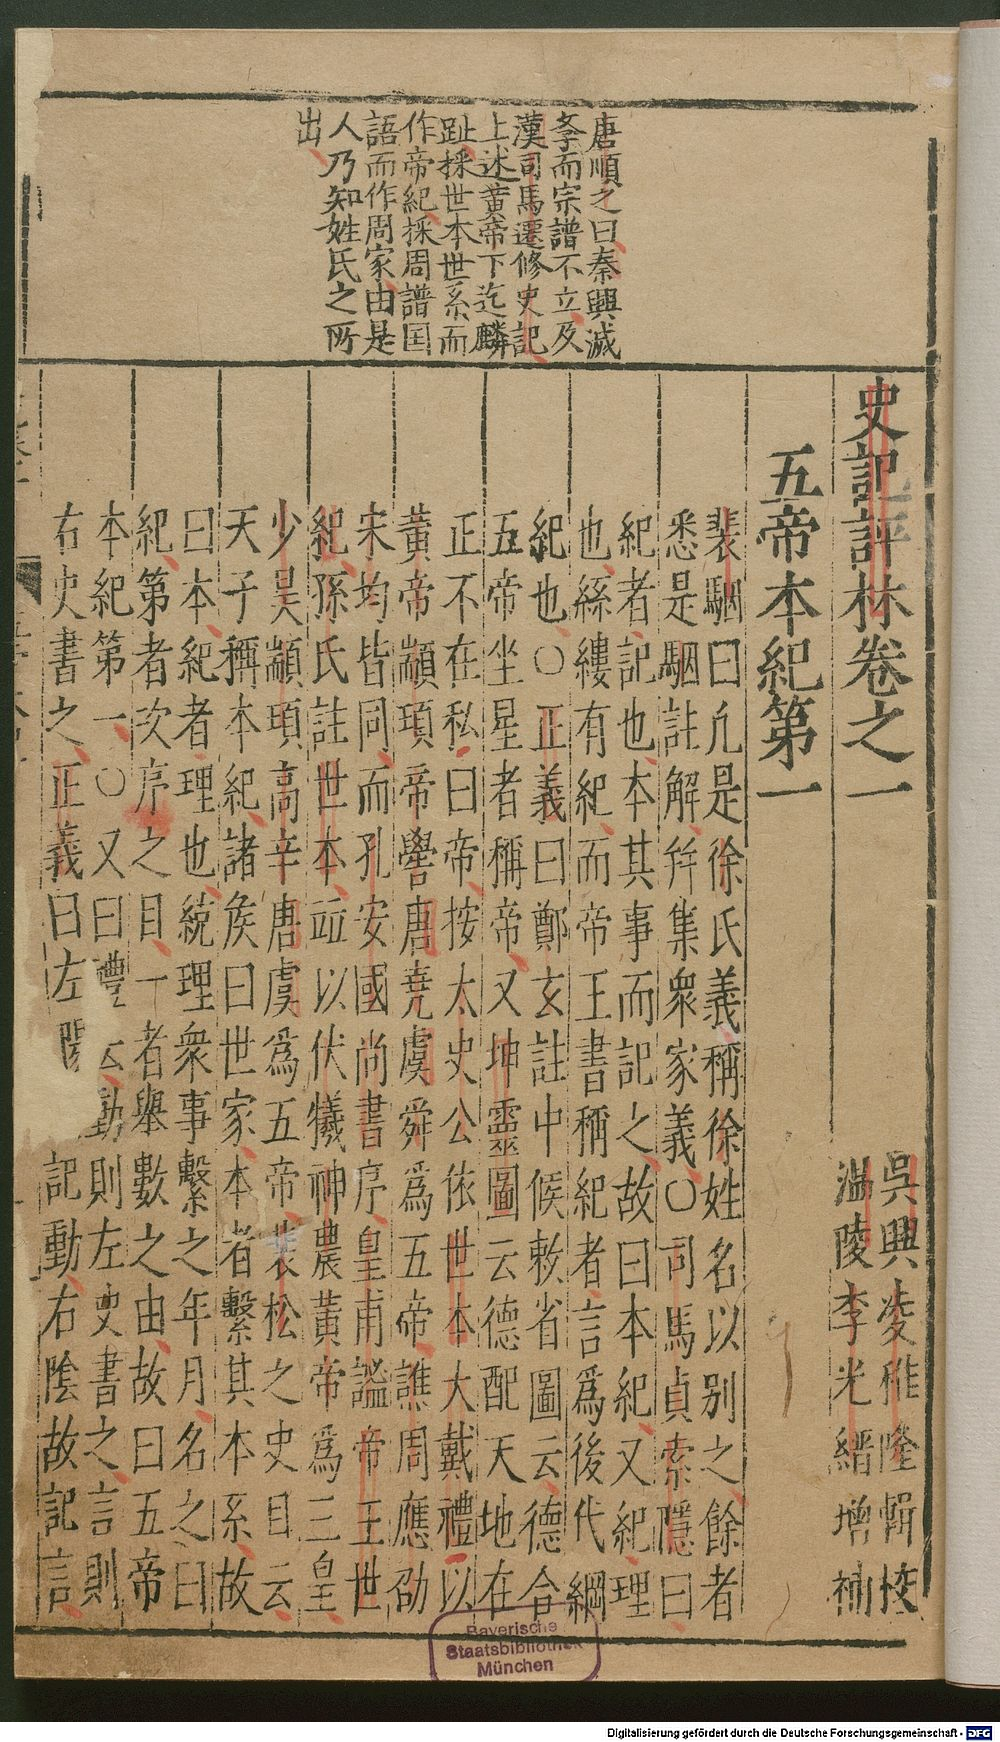 唐順之曰秦興滅
斈而宗譜不立及
漢司馬遷修史記
上述黄帝下迄麟
趾採世本世系而
作帝紀採周譜囯
語而作周家由是
人乃知姓氏之所
出
史記評林卷之一
吳興凌稚隆輯校
温陵李光縉增補
五帝本紀第一
裴駰曰凢是徐氏義稱徐姓名以别之餘者
悉是駰註解并集衆家義○司馬貞索隱曰
紀者記也本其事而記之故曰本紀又紀理
也絲縷有紀而帝王書稱紀者言爲後代綱
紀也○正義曰鄭玄註中候敕省圖云德合
五帝坐星者稱帝又坤靈圖云德配天地在
正不在私曰帝按太史公依世本大戴禮以
黄帝顓頊帝嚳唐堯虞舜爲五帝譙周應劭
宋均皆同而孔安國尚書序皇甫謐帝王世
紀孫氏註世本竝以伏犧神農黄帝爲三皇
少昊顓頊高辛唐虞爲五帝裴松之史目云
天子稱本紀諸侯曰世家本者繫其本系故
曰本紀者理也統理衆事繫之年月名之曰
紀第者次序之目一者舉數之由故曰五帝
本紀第一○又曰禮云動則左史書之言則
右史書之正義曰左陽記動右陰故記言
Bayerische
Staatsbibliothek
München
Digitalisierung gefördert durch die Deutsche Forschungsgemeinschaft - DFG